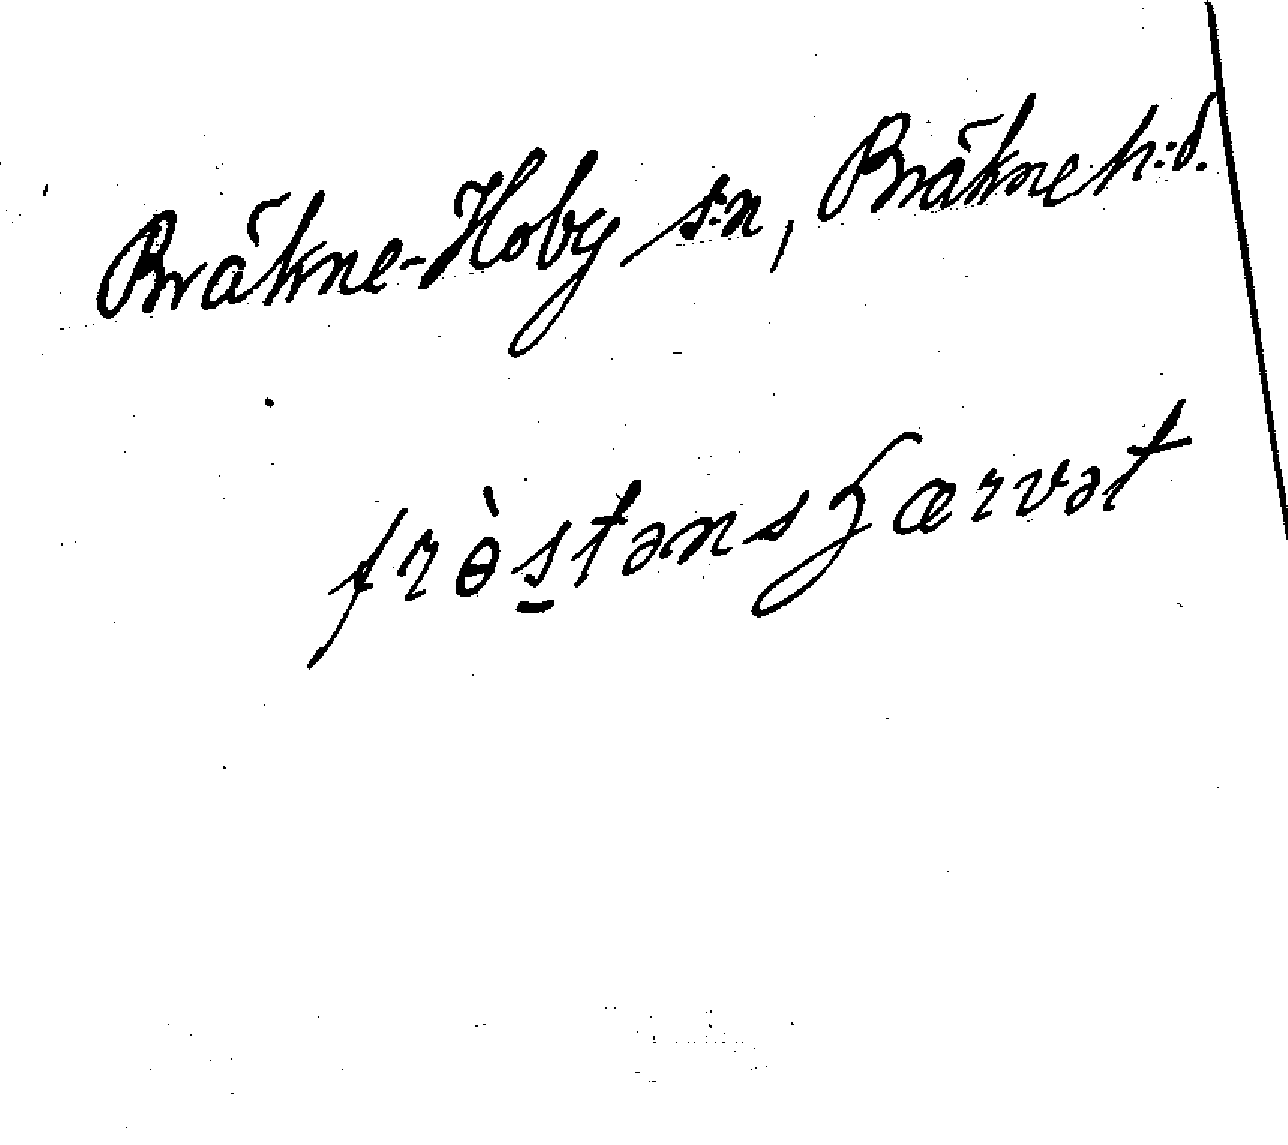 Bräkne-Hoby s:n, Bräkne h:d.
frɵ̀s̱tənsʒærvət